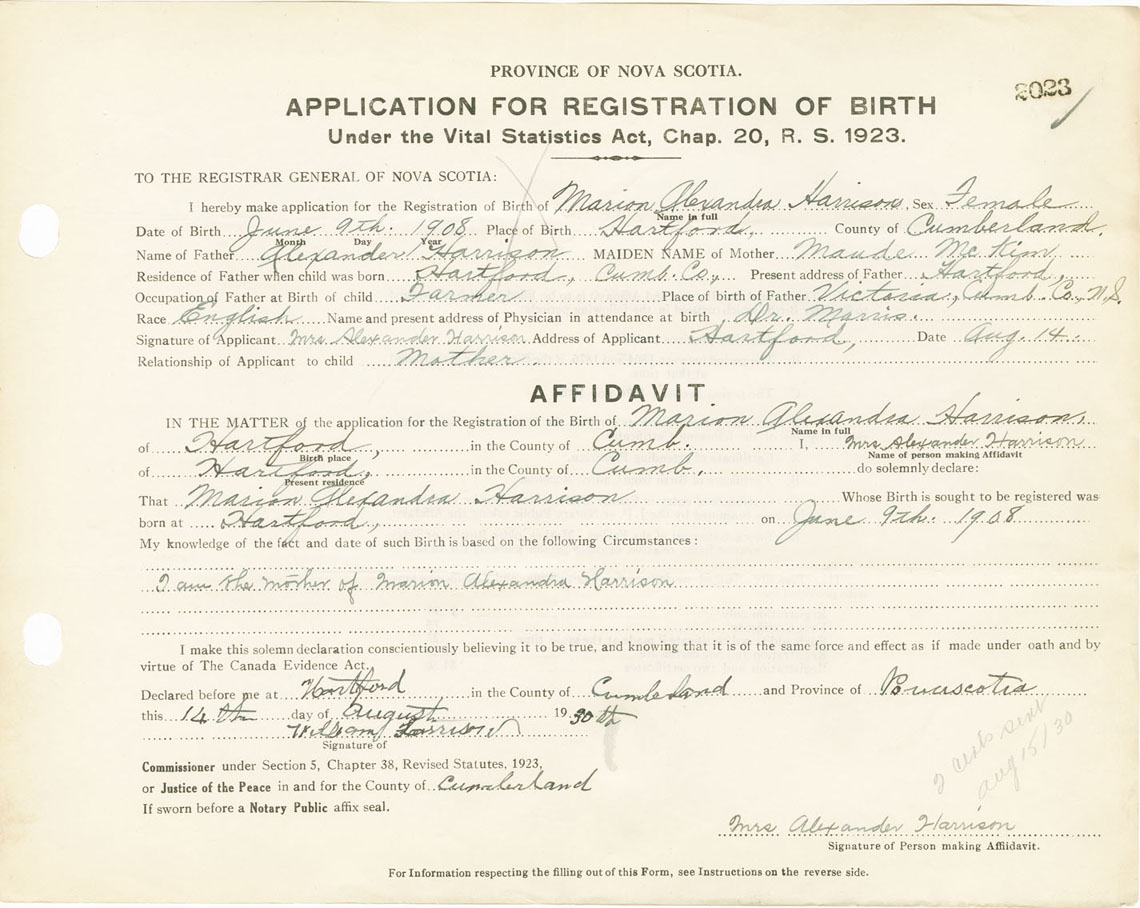 PROVINCE OF NOVA SCOTIA.
2023
APPLICATION FOR REGISTRATION OF BIRTH
Under the Vital Statistics Act, Chap. 20, R. S. 1923.
TO THE REGISTRAR GENERAL OF NOVA SCOTIA:
I hereby make application for the Registration of Birth of Marion Alexandra Harrison, Sex Female
Name in full
Date of Birth June 9th. 1908 Place of Birth Hartford, County of Cumberland.
Month Day Year
Name of Father Alexander Harrison MAIDEN NAME of Mother Maude McKim
Residence of Father when child was born Hartford, Cumb. Co., Present address of Father Hartford,
Occupation of Father at Birth of child Farmer Place of birth of Father Victoria, Cumb. Co., N.S.
Race English Name and present address of Physician in attendance at birth, Dr. Morris.
Signature of Applicant Mrs Alexander Harrison Address of Applicant Hartford, Date Aug. 14.
Relationship of Applicant to child Mother.
AFFIDAVIT.
IN THE MATTER of the application for the Registration of the Birth of Marion Alexandra Harrison,
Name in full
of Hartford, in the County of Cumb. I, Mrs Alexander Harrison
Birth place Name of person making Affidavit
of Hartford, in the County of Cumb. do solemnly declare:
Present residence
That Marion Alexandra Harrison Whose Birth is sought to be registered was
born at Hartford, on June 9th. 1908
My knowledge of the fact and date of such Birth is based on the following Circumstances:
I am the mother of Marion Alexandra Harrison
I make this solemn declaration conscientiously believing it to be true, and knowing that it is of the same force and effect as if made under oath and by
virtue of The Canada Evidence Act.
Declared before me at Hartford in the County of Cumberland and Province of
this 14th day of August 1930th
William Harrison
Signature of
Commissioner under Section 5, Chapter 38, Revised Statutes, 1923,
or Justice of the Peace in and for the County of Cumberland
If sworn before a Notary Public affix seal.
2 certs sent
Aug 15/30
Mrs Alexander Harrison
Signature of Person making Affiidavit.
For Information respecting the filling out of this Form, see Instructions on the reverse side.